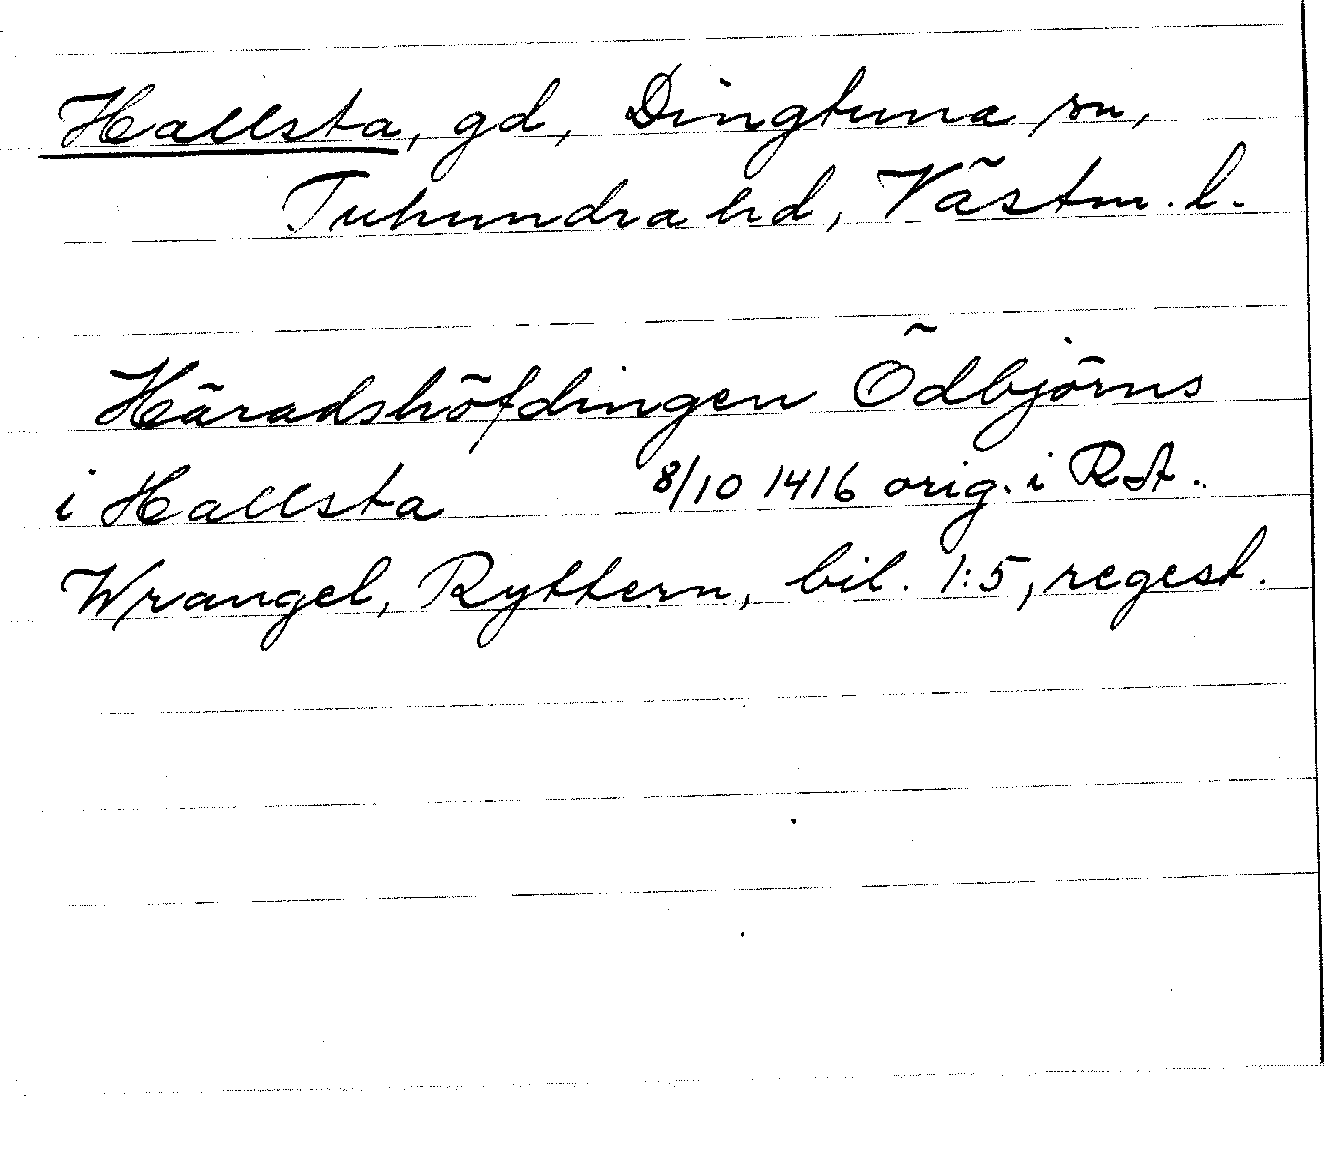 Hallsta, gd, Dingtuna sn,
Tuhundra hd, Västm. l.
Häradshöfdingen Ödbjörns
i Hallsta 8/10 1416 orig. i RA.
Wrangel, Ryttern, bil. 1:5, regest.